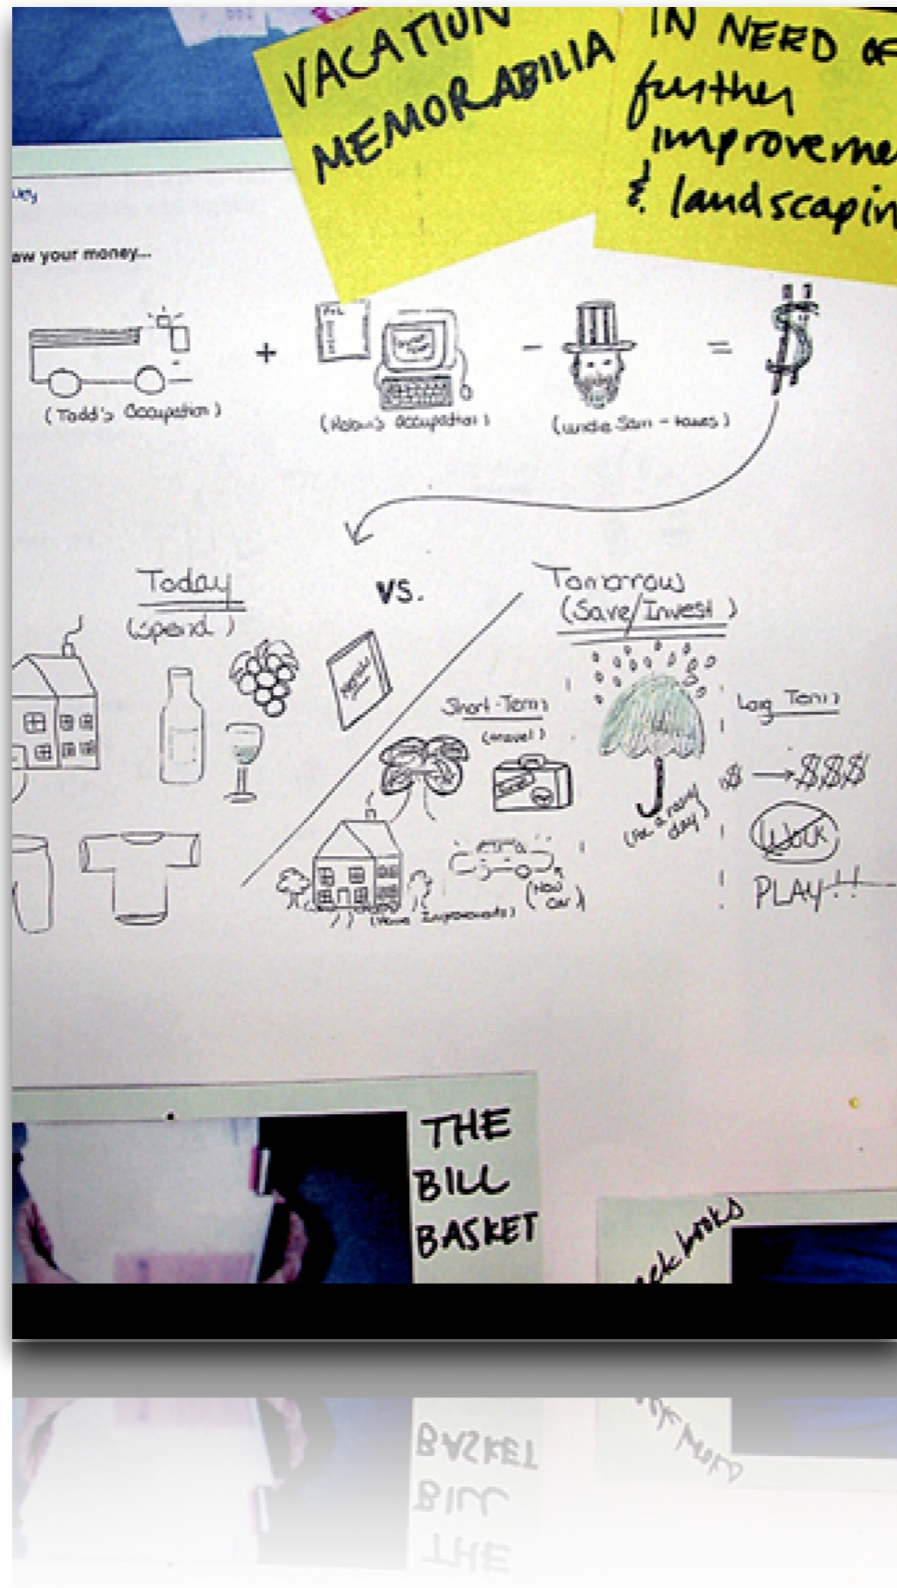 VACATION
MEMORABILIA
IN NEED OF
further
improveme
& landscapin
aw your money...
+
-
=
$
(Todd's Occupation)
(Robin's Occupation)
(Uncle Sam - taxes)
Today
(Spend)
vs.
Tomorrow
(Save/Invest)
Short-Term
(travel)
Long Term
$ → $$$
(for a rainy
day)
Work
PLAY!!
(New
Car)
(Home Improvements)
THE
BILL
BASKET
eck books